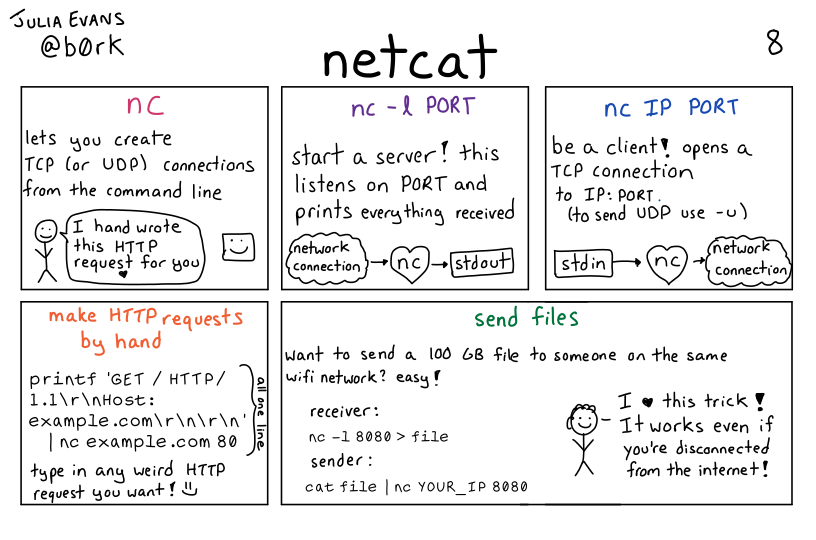 JULIA EVANS
@b0rk
netcat
8
nc
lets you create
TCP (or UDP) connections
from the command line
I hand wrote
this HTTP
request for you
♥
nc -l PORT
start a server! this
listens on PORT and
prints everything received
network
connection
nc
stdout
nc IP PORT
be a client! opens a
TCP connection
to IP:PORT.
(to send UDP use -u)
stdin
nc
network
connection
make HTTP requests
by hand
printf 'GET / HTTP/
1.1\r\nHost:
example.com\r\n\r\n'
| nc example.com 80
all one line
type in any weird HTTP
request you want!
send files
want to send a 100 GB file to someone on the same
wifi network? easy!
receiver:
nc -l 8080 > file
sender:
cat file | nc YOUR_IP 8080
I ♥ this trick!
It works even if
you're disconnected
from the internet!